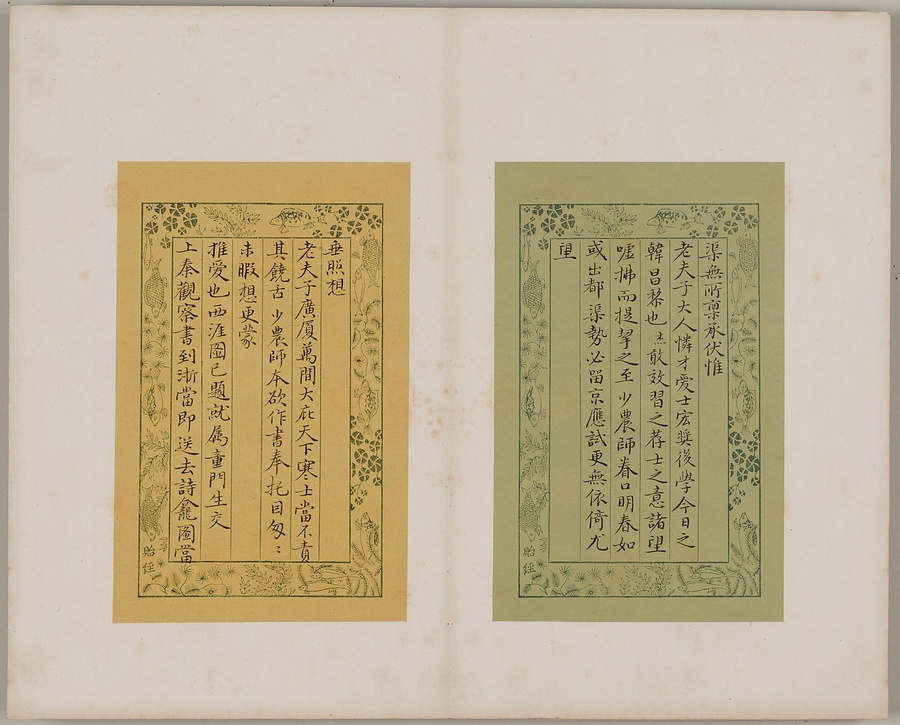 渠無所稟承伏惟
老夫子大人憐才愛士宏奬後學今日之
韓昌黎也杰敢效習之荐士之意諸望
噓拂而提挈之至少農師眷口明春如
或出都渠勢必留京應試更無依倚尤
望
貽
垂照想
老夫子廣厦萬間大庇天下寒士當不責
其饒舌少農師本欲作書奉托因匆〻
未暇想更蒙
推愛也西涯圖已題就屬童門生交
上秦觀察書到浙當即送去詩龕圖當
貽